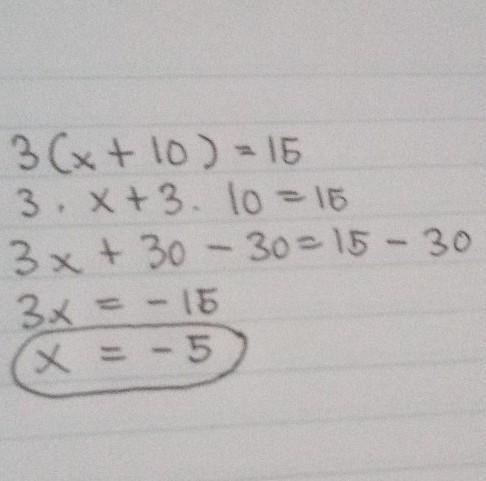 3(x + 10) = 15
3 . x + 3 . 10 = 15
3x + 30 - 30 = 15 - 30
3x = - 15
x = - 5